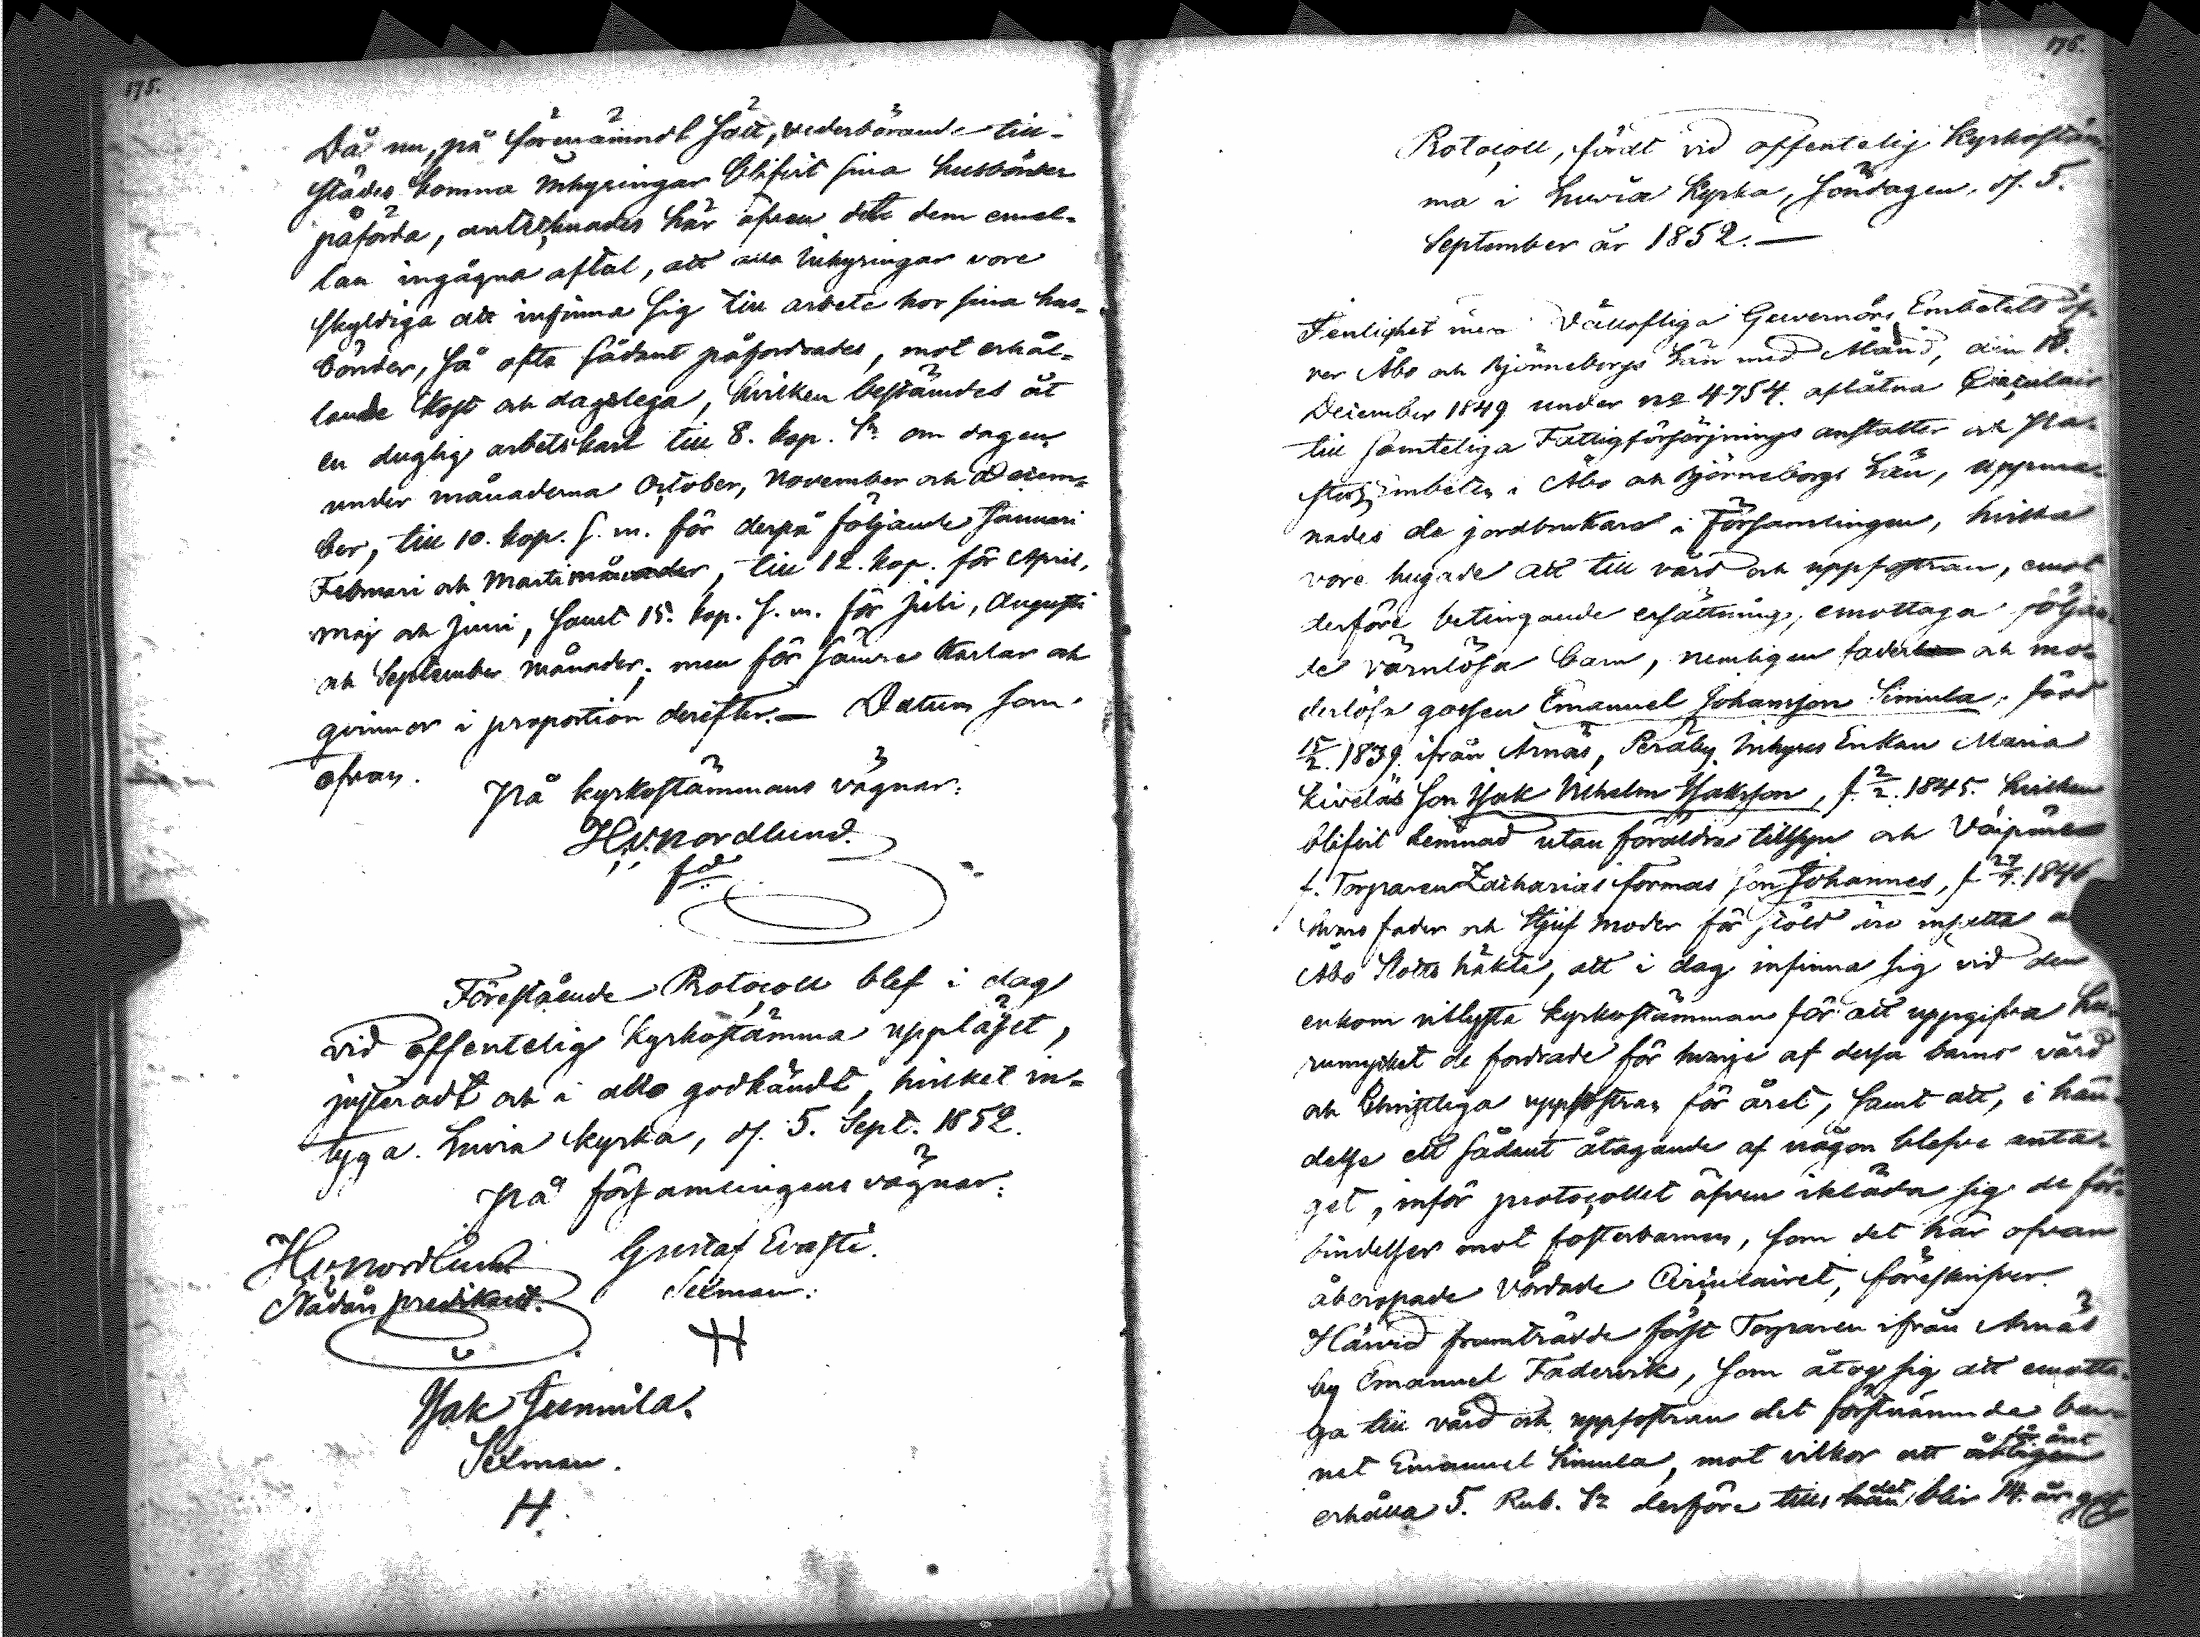 175.
Då nu, på förenämndt sätt, vederbörande till-
städes komna Inhysingar blifvit sina husbönder
påförda, antecknades här äfven det dem emel-
lan ingågna aftal, att alla Inhysingar vore
skyldiga att infinna sig till arbete hos sina hus-
bönder, så ofta sådant påfordrades, mot erhål-
lande kost och dagslega, hvilken bestämdes åt
en duglig arbetskarl till 8. kop. Sr om dagen
under månaderna October, November och Decem-
ber, till 10. kop. S. m. för derpå följande Januari
Februari och Marti månader, till 12. kop. för April,
Maj och Juni, samt 15. kop. S. m. för Juli, Augusti
och September månader; men för sämre karlar och
qvinnor i proportion derefter.— Datum som
ofvan.
På kyrkostämmans vägnar:
H. v. Nordlund.
Förestående Protocoll blef i dag
vid offentelig Kyrkostämma uppläset,
justeradt och i allo godkändt, hvilket in-
tyga. Luvia kyrka, d. 5. Sept. 1852.
På församlingens vägnar:
H. v. Nordlund
Nådårs predikant.
Gustaf Evasti.
Sexman:
Isak Gunnila.
Sexman.
176.
Protocoll, fördt vid offentelig Kyrkostäm-
ma i Luvia Kyrka, Söndagen, d. 5.
September år 1852.—
I enlighet med Vällofliga Guvernörs Embetets öf-
ver Åbo och Björneborgs Län med Åland, den 18.
December 1849 under No 4754. aflåtna Circulair
till samteliga Fattigförsörjnings anstalter och Pa-
storsembeten i Åbo och Björneborgs Län, uppma-
nades de jordbrukare i Församlingen, hvilka
vore hugade att till vård och uppfostran, emot
derföre betingande ersättning, emottaga följan-
de värnlösa barn, nemligen fader och mo-
derlösa gossen Emanuel Johansson Simula, född
15/2. 1839. ifrån Arnäs, Peråby Inhyses Enkan Maria
Kiveläs son Isak Vilhelm Isaksson, f. 2/2. 1845. hvilken
blifvit lemnad utan föräldra tillsyn och Väipäre
f. Torparen Zacharias Formas son Johannes, f 27/7. 1846
hvars fader och Stjuf moder för stöld äro insatta
Åbo Slotts häkte, att i dag infinna sig vid den
enkom utlysta kyrkostämman för att uppgifva hu-
rumycket de fordrade för hvarje af dessa barns vård
och Christliga uppfostran för året, samt att, i hän-
delse ett sådant åtagande af någon blefve anta-
get, inför protocollet äfven ikläda sig de för-
bindelser mot fosterbarnen, som det här ofvan
åberopade vördade Circulairet, föreskrifver.
Härvid framträdde först Torparen ifrån Arnäs
by Emanuel Fadervik, som åtog sig att emotta-
ga till vård och uppfostran det förstnämnde bar-
net Emanuel Simula, mot vilkor att
för året
erhålla 5. Rub. Sr derföre tills det blir 14. år